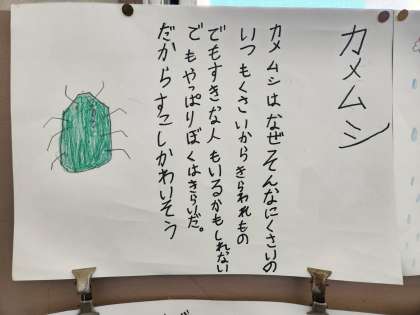 カメムシ
カメムシはなぜそんなにくさいの
いつもくさいからきらわれもの
でもすきな人もいるかもしれない
でもやっぱりぼくはきらいだ。
だからすこしかわいそう